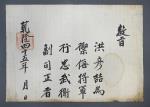 敎旨
洪爲
禦侮將軍
行忠武衛
副司正者
乾隆四十五年 月 日